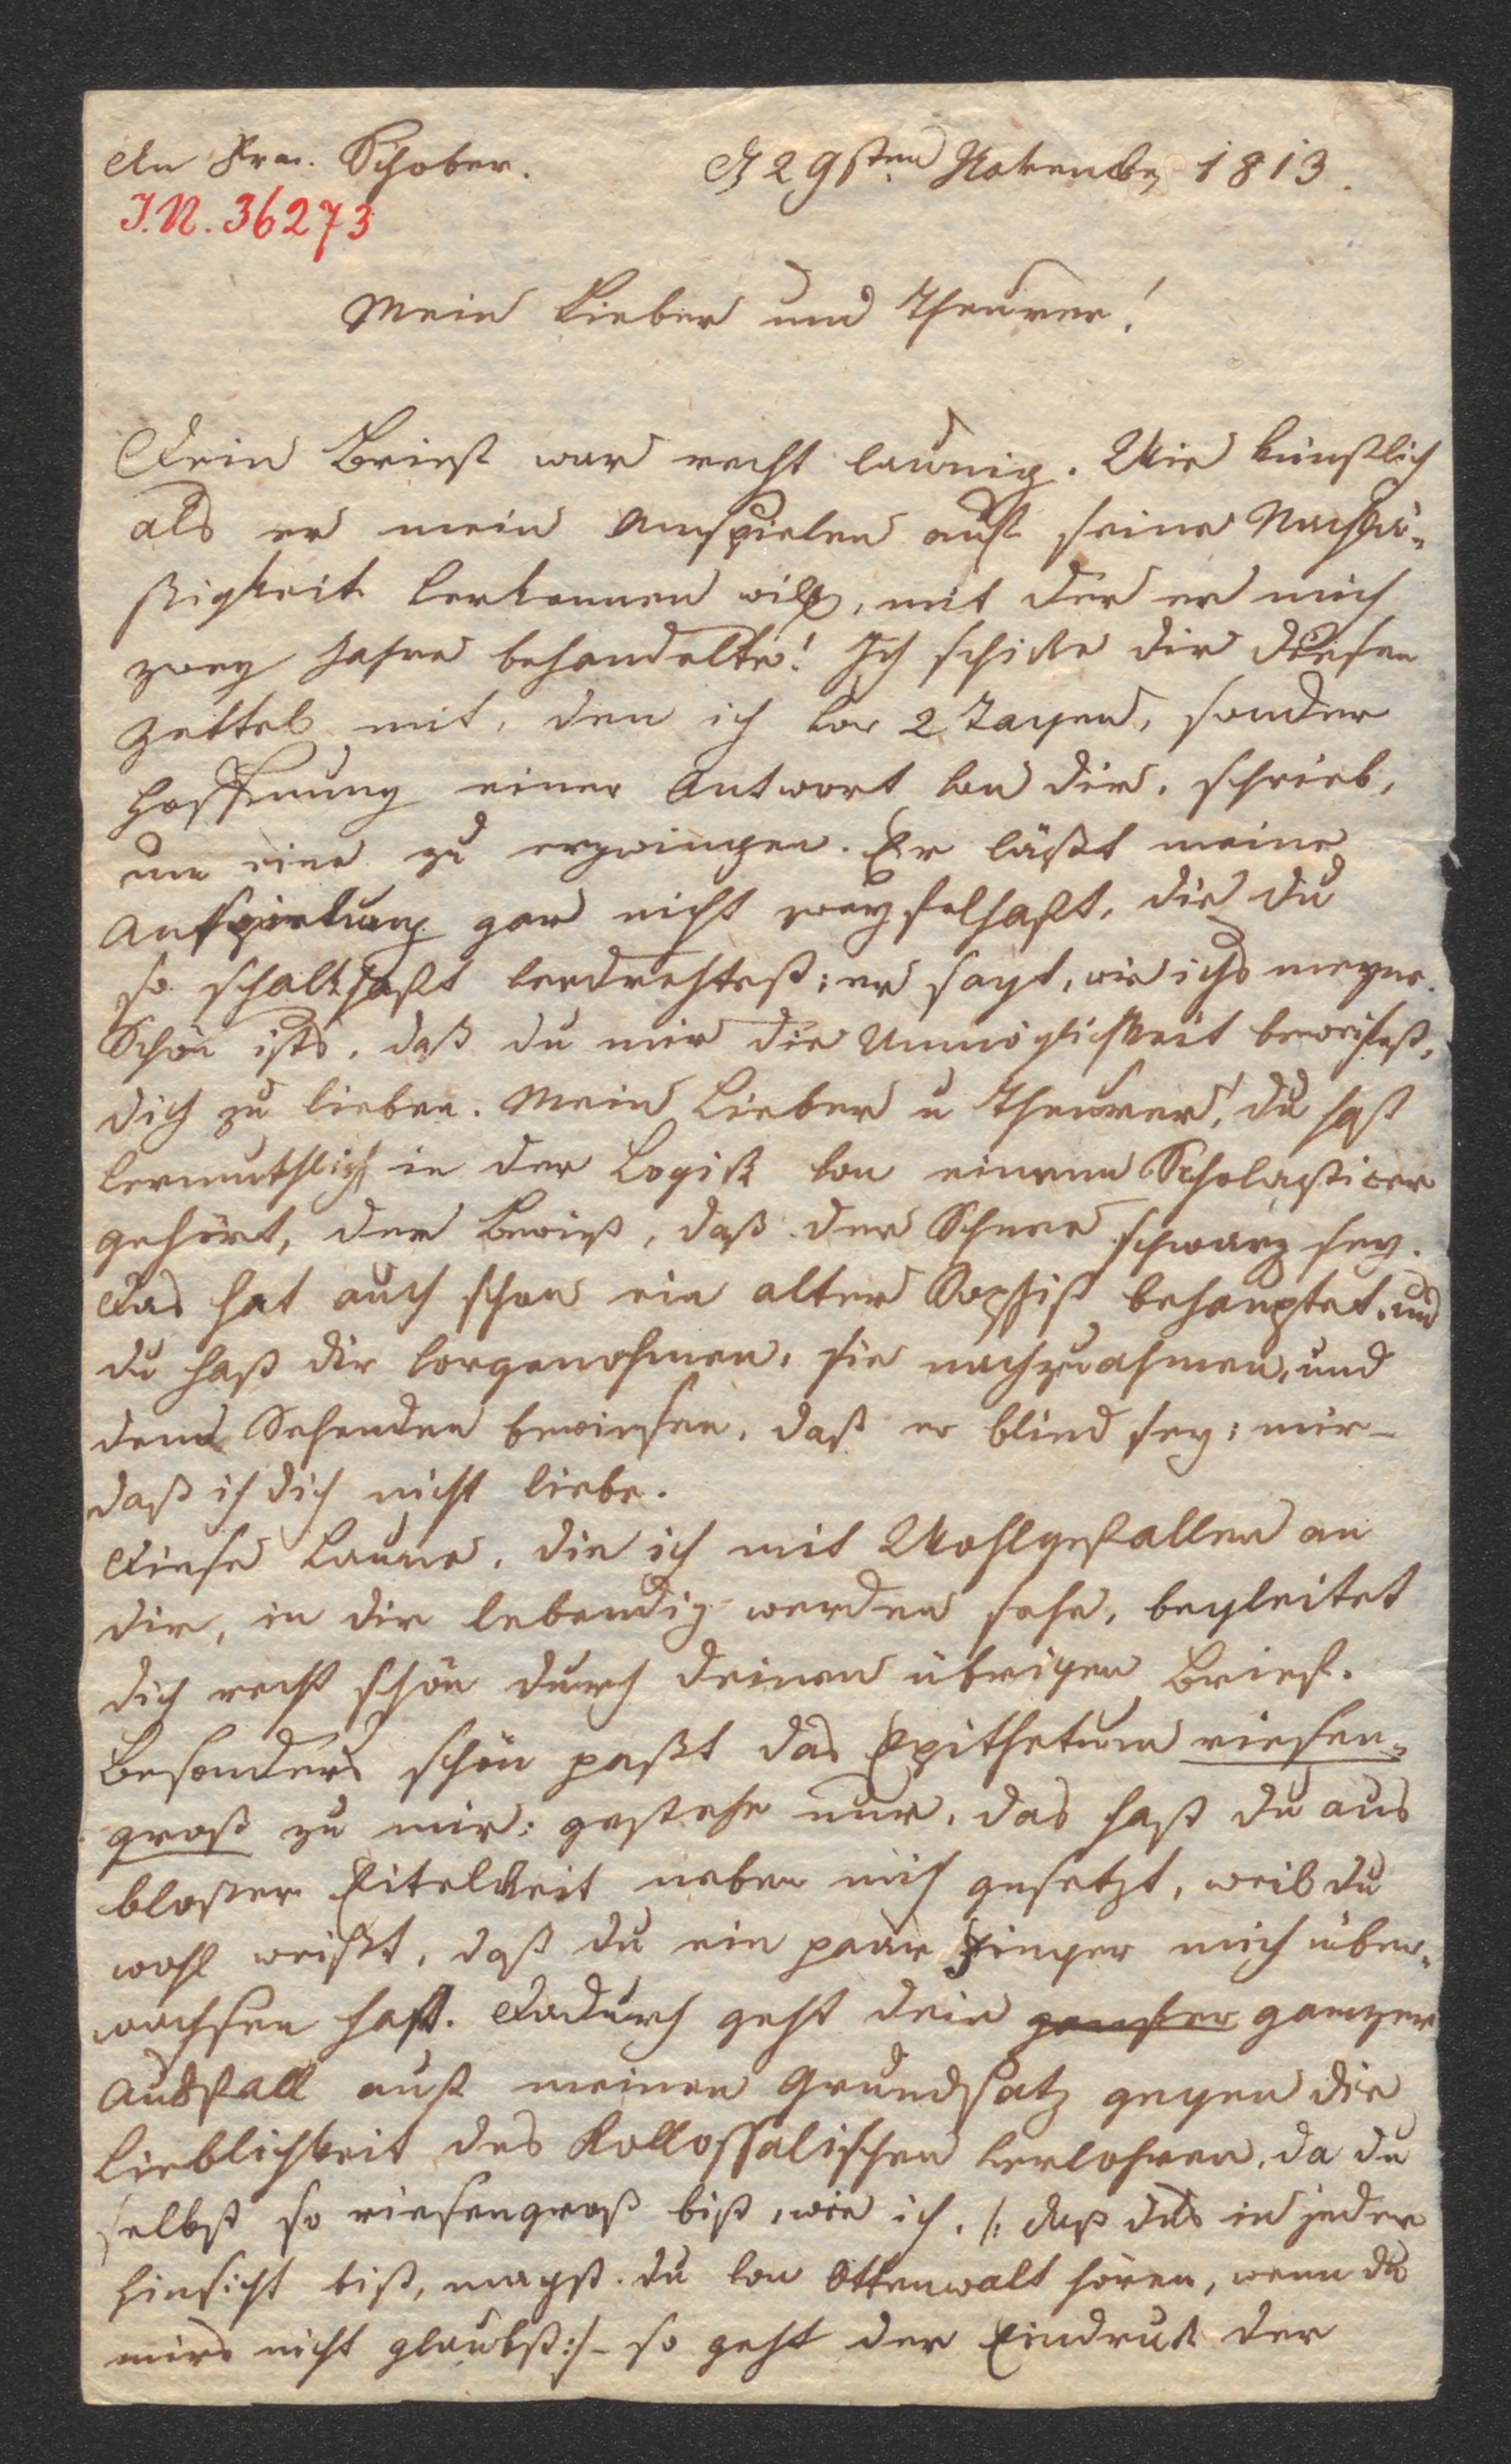 An Frn. Schober. D 29sten November 1813.
I.N. 36273
Mein Lieber und Theurer!
Dein Brief war recht launig. Wie künstlich
als er mein Anspielen auf seine Nachlä-
ßigkeit verkennen will, mit der er mich
zwey Jahre behandelte! Ich schicke dir diesen
Zettel mit, den ich vor 2 Tagen, sonder
Hoffnung einer Antwort von dir, schrieb,
um eine zu erzwingen. Er läßt meine
Anspielung gar nicht zweyfelhaft, die du
so schalkhaft verdrehtest; er sagt, wie ichs meyne.
Schön ists, daß du mir die Unmöglichkeit beweisest,
dich zu lieben. Mein Lieber u Theurer! du hast
vermuthlich in der Logik von einem Scholasticer
gehört, der bewieß, daß der Schnee schwarz sey.
Das hat auch schon ein alter Sophist behauptet, und
du hast dir vorgenohmen, sie nachzuahmen, und
dem Sehenden bewiesen, daß er blind sey; mir –
daß ich dich nicht liebe.
Diese Laune, die ich mit Wohlgefallen an
dir, in dir lebendig werden sehe, begleitet
dich recht schön durch deinen übrigen Brief.
Besonders schön paßt das Epithetum riesen-
groß zu mir; gestehe nur, das hast du aus
bloßer Eitelkeit neben mich gesetzt, weil du
wohl weißt, daß du ein paar Finger mich über-
wachsen hast. Dadurch geht dein ganzer
Ausfall auf meinen Grundsatz gegen die
Lieblichkeit des Kollossalischen verlohren, da du
selbst so riesengroß bist, wie ich. /: daß dus in jeder
Hinsicht bist, magst du von Ottenwalt hören, wenn du
mirs nicht glaubst:/ – so geht der Eindruck der